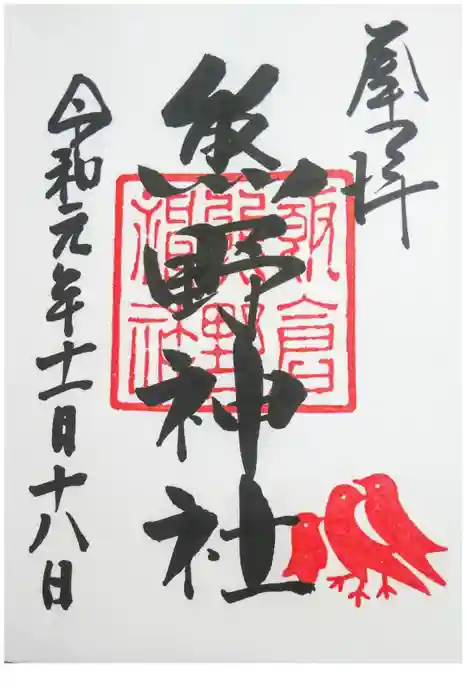 奉拝
熊野神社
令和元年十一月十八日
朝倉
熊野
神社